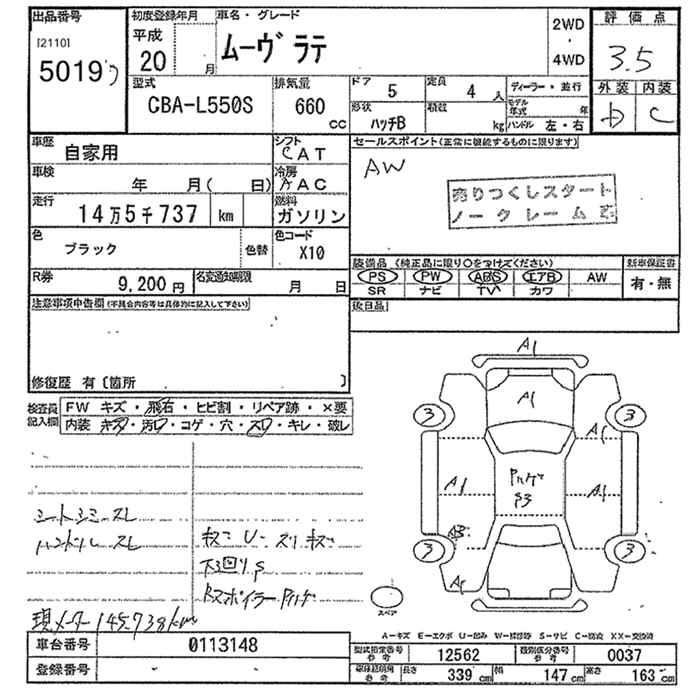 出品番号 初度登録年月 車名・グレード 評価点
[2110] 平成 ムーヴ ラテ 2WD
5019 20 月 ・ 3.5
4WD
型式 排気量 ドア 定員 ディーラー・並行 外装 内装
CBA-L550S 660 CC 5 4人 モデル年式 年 D C
形状 積数 ハンドル 左・右
ハッチB kg
車歴 シフト セールスポイント(正常に機能するものに限ります)
自家用 CAT AW
車検 冷房
年 月( 日) AAC 売りつくしスタート
走行 燃料 ノークレーム
14万5千737 km ガソリン
色 色コード
ブラック 色替 X10
装備品 (純正品に限り○をつけてください) 新車保証書
R券 名変通知期限 PS PW ABS エアB AW 有・無
9,200円 月 日 SR ナビ TV カワ
注意事項申告欄(不具合内容等は具体的に記入して下さい) 後日品
修復歴 有 〔箇所 〕
検査員記入欄 FW キズ・飛石・ヒビ割・リペア跡・×要
内装 キズ・汚レ・コゲ・穴・スレ・キレ・破レ
A1
A1
3 3
A1
A1 A1
3 3
シートシミ スレ
ハンドル スレ
キズ U スリキズ
下回りS
RスポイラーPハゲ
スペア
現メーター 145,738km
A-キズ E-エクボ U-凹み W-補修跡 S-サビ C-腐食 XX-交換済
車台番号 0113148 型式指定番号参考 12562 類別区分番号参考 0037
登録番号 長さ 339cm 幅 147cm 高さ 163cm